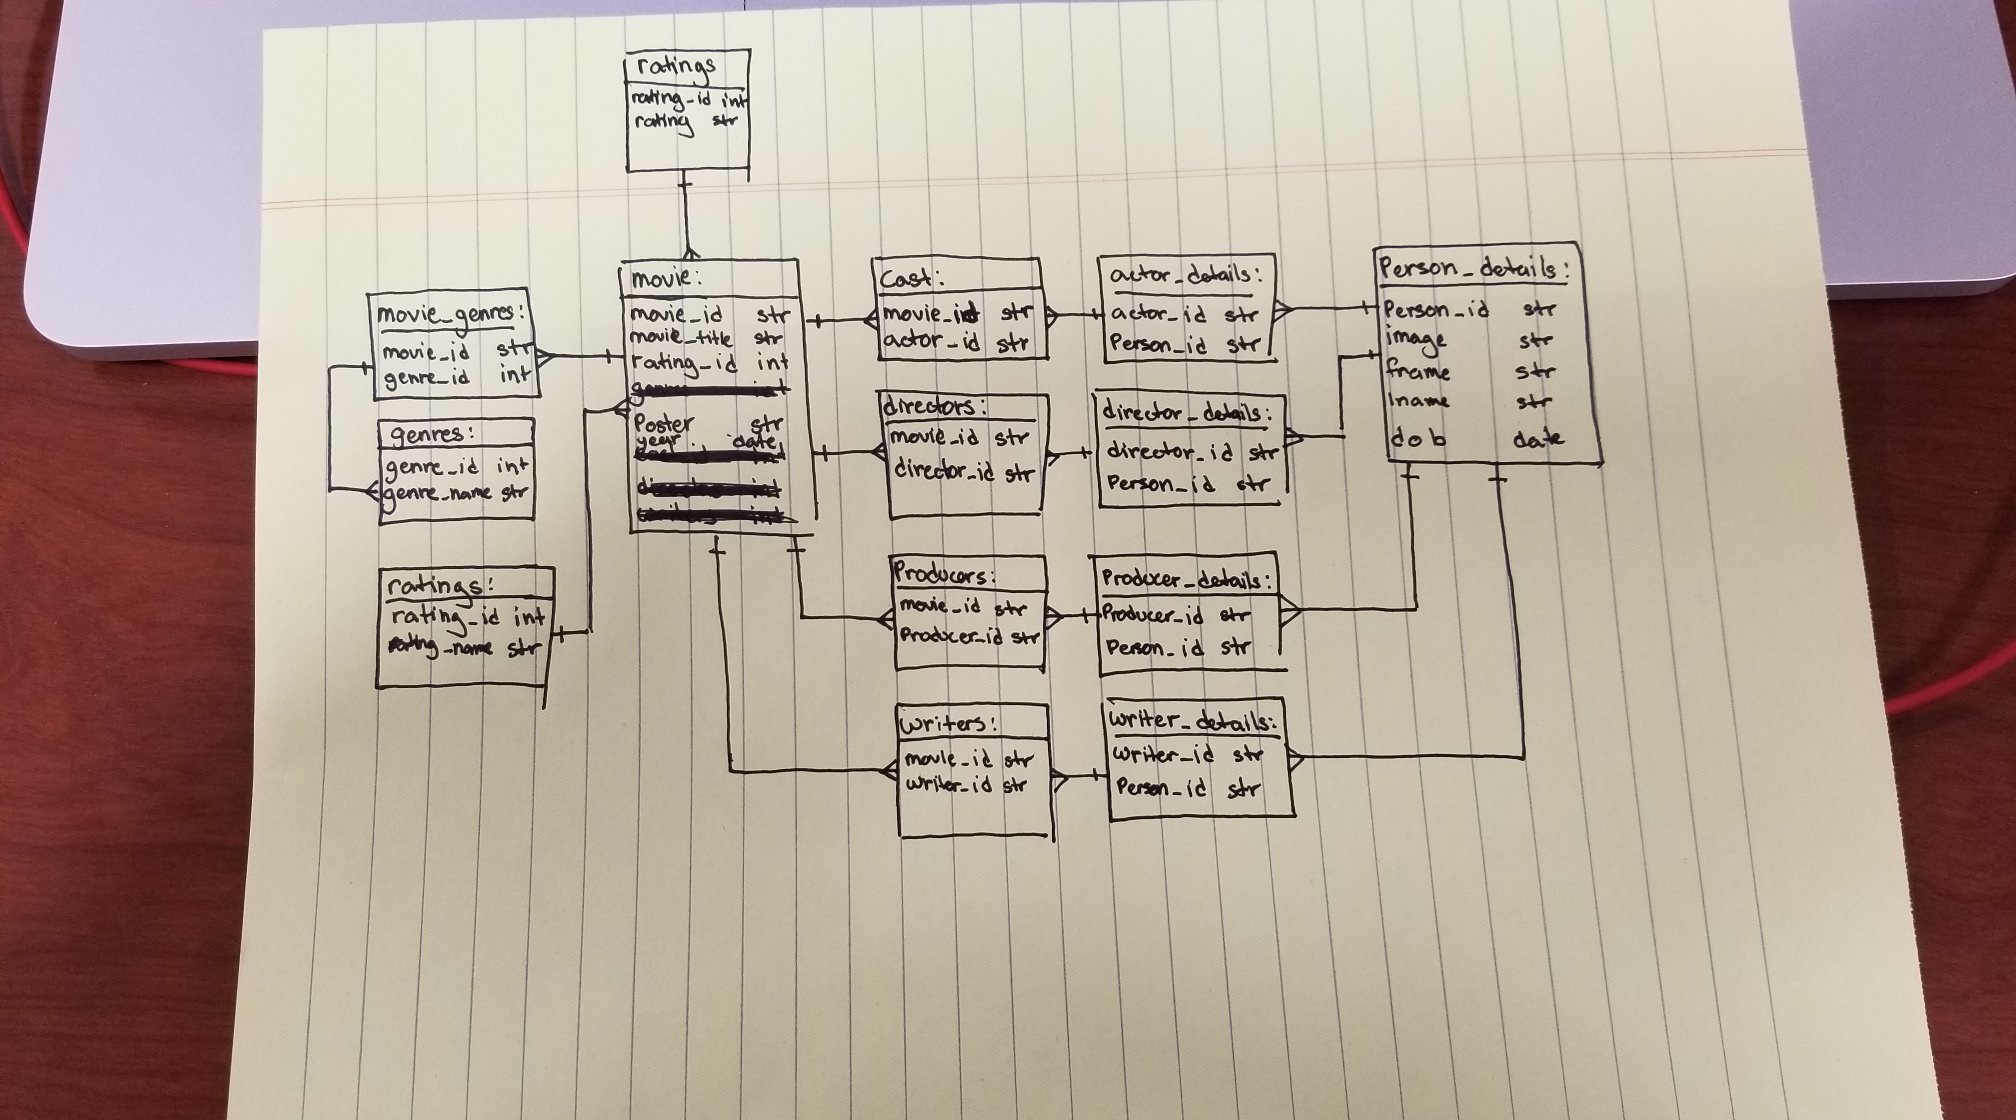 ratings
rating_id int
rating str
movie_genres:
movie_id str
genre_id int
genres:
genre_id int
genre_name str
ratings:
rating_id int
rating_name str
movie:
movie_id str
movie_title str
rating_id int
Poster str
year date
Cast:
movie_id str
actor_id str
directors:
movie_id str
director_id str
Producers:
movie_id str
Producer_id str
writers:
movie_id str
writer_id str
actor_details:
actor_id str
Person_id str
director_details:
director_id str
Person_id str
Producer_details:
Producer_id str
Person_id str
writer_details:
writer_id str
Person_id str
Person_details:
Person_id str
image str
fname str
lname str
dob date